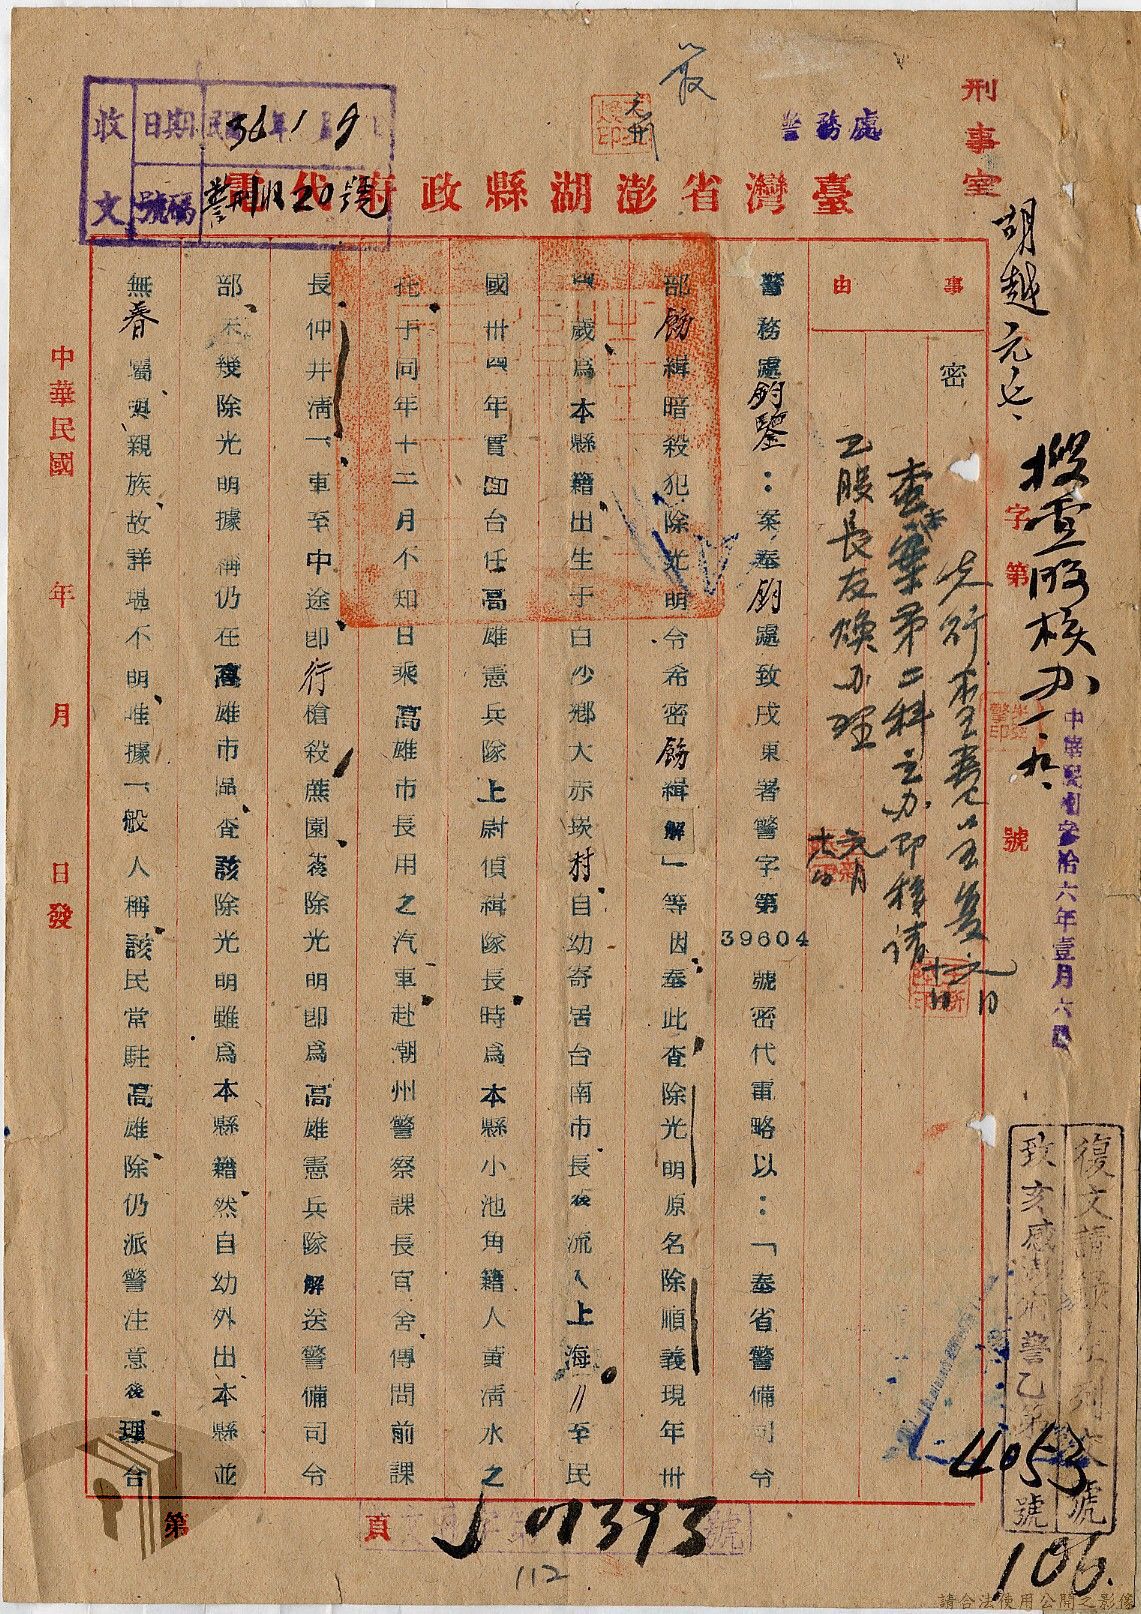 刑事室
警務處
臺灣省澎湖縣政府代電
收文
日期 民國36年1月9日
號碼 警刑收20號
胡越 元七、
字第 號
中華民國參拾六年壹月六日
事由
密
乙股長友煥办理
元月
警務處鈞鑒：案奉鈞處致戌東署警字第39604號密代電略以：「奉省警備司令
部飭緝暗殺犯除光明令希密飭緝解」等因奉此查除光明原名除順義現年卅
歲為本縣籍出生于白沙鄉大赤崁村自幼寄居台南市長後流入上海川至民
國卅四年實回台任高雄憲兵隊上尉偵緝隊長時為本縣小池角籍人黃清水之
化于同年十二月不知日乘高雄市長用之汽車赴潮州警察課長官舍傳問前課
長仲井清一、車至中途即行槍殺蔗園後除光明即為高雄憲兵隊解送警備司令
部不幾除光明據稱仍在高雄市品查該除光明雖為本縣籍然自幼外出本縣並
無眷屬與親族故詳堪不明唯據一般人稱該民常駐高雄除仍派警注意後理合
中華民國 年 月 日發
第 頁
復文請 列 號
致亥感 府警乙第 號
4053
106.
J01393
112
請合法使用公開之影像